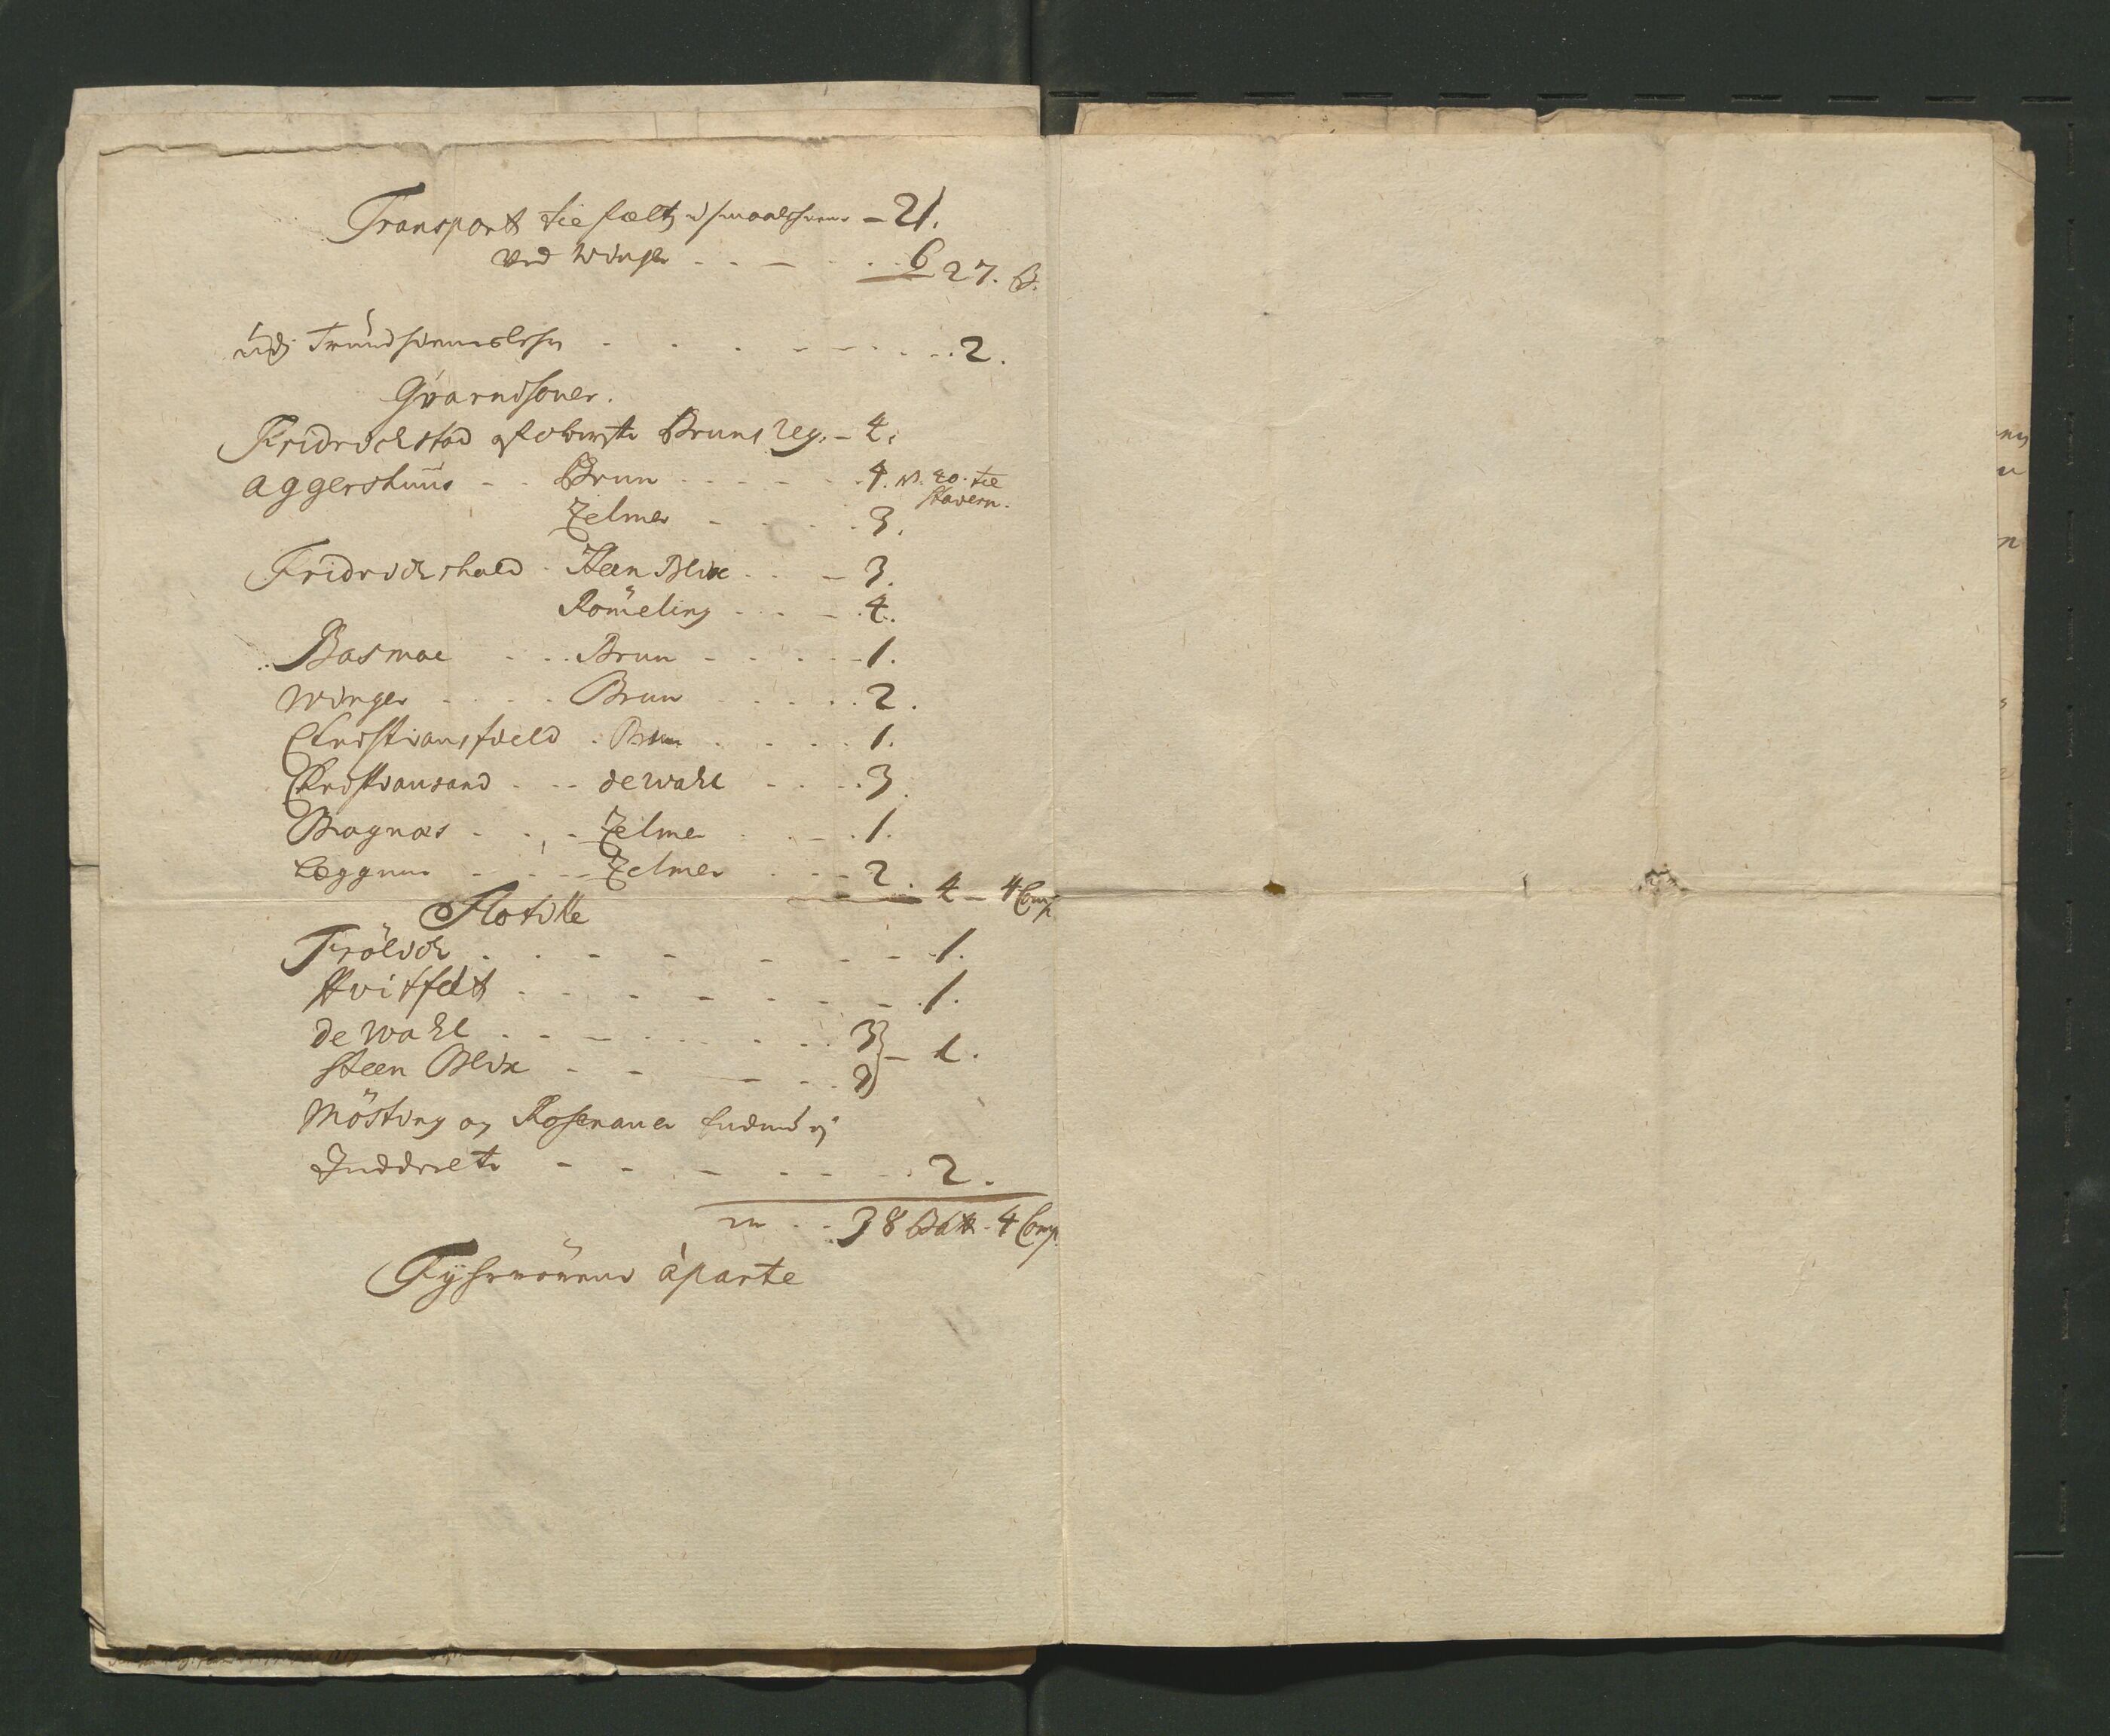 Transport til felts i smaalehnene - 21.
ved Winger - - - . . 6 27. B.
udj Trundhiembs lehn . . . - - . . . 2.
Gvarnisoner.
Fridrichstad af oberste Bruns reg. - 4.
Aggershuus - . Brun . . - . - . 4. N. 20. til
Stavern.
Zelmer - . . . 3.
Fridrichshald . Steen Blixe . . - 3.
Römeling . . . - . 4.
Basmoe - . . Brun - . . . - 1.
Winger . . . . Brun . . . . . 2.
Christiansfield . Brun . . . . 1.
Christiansand . - - de Wahl - . . . 3.
Bragnæs - . . - Zelmer . . - . 1.
Læggum . . . - - Zelmer . . - 2. 4 - 4 Comp.
Flotille
Frölich . . . - - - - - - 1.
Hvitfelt . . . - - - . - - . 1.
de Wahl . - - - . . . . . 3
Steen Blixe - - - . . 3 } - 1.
Mösting og Rosenauer
Indrulte - - - . - - . . 2.
38 Batt. - 4 Comp.
àparte